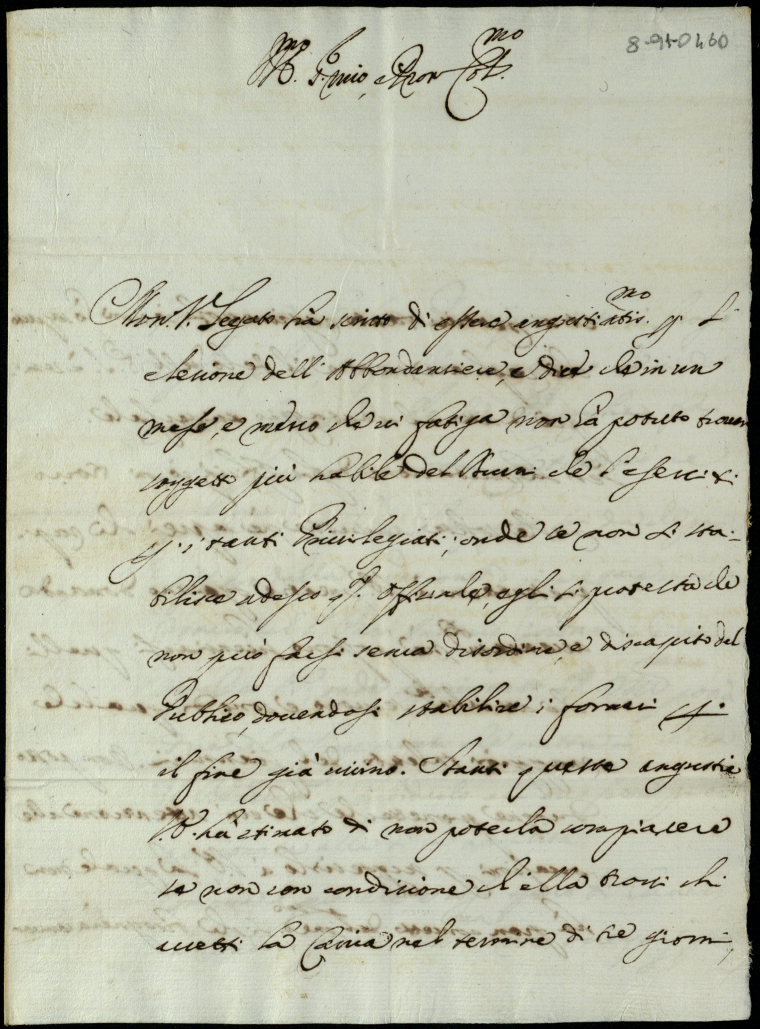 8-95-0460
Ill.mo S.r mio, e P.ron Col.mo
Mon.r V. Legato hà scritto di essere angustiatis.mo p. l'
elezione dell' Abbondanziere, e dice che in un
mese, e mezzo che vi fatiga non hà potuto trovar
soggetto più habile del che l'eserciti
p. i tanti Privilegiati; onde se non si sta-
bilisce adesso q.to Offiziale, egli si protesta che
non può farsi senza disordine, e discapito del
Publico, dovendosi stabilire i fornari p.
il fine già vicino. Stanti queste angustie
hà stimato di non poterla compiacere
se non con condizione ch'ella trovi chi
accetti la Carica nel termine di tre giorni,